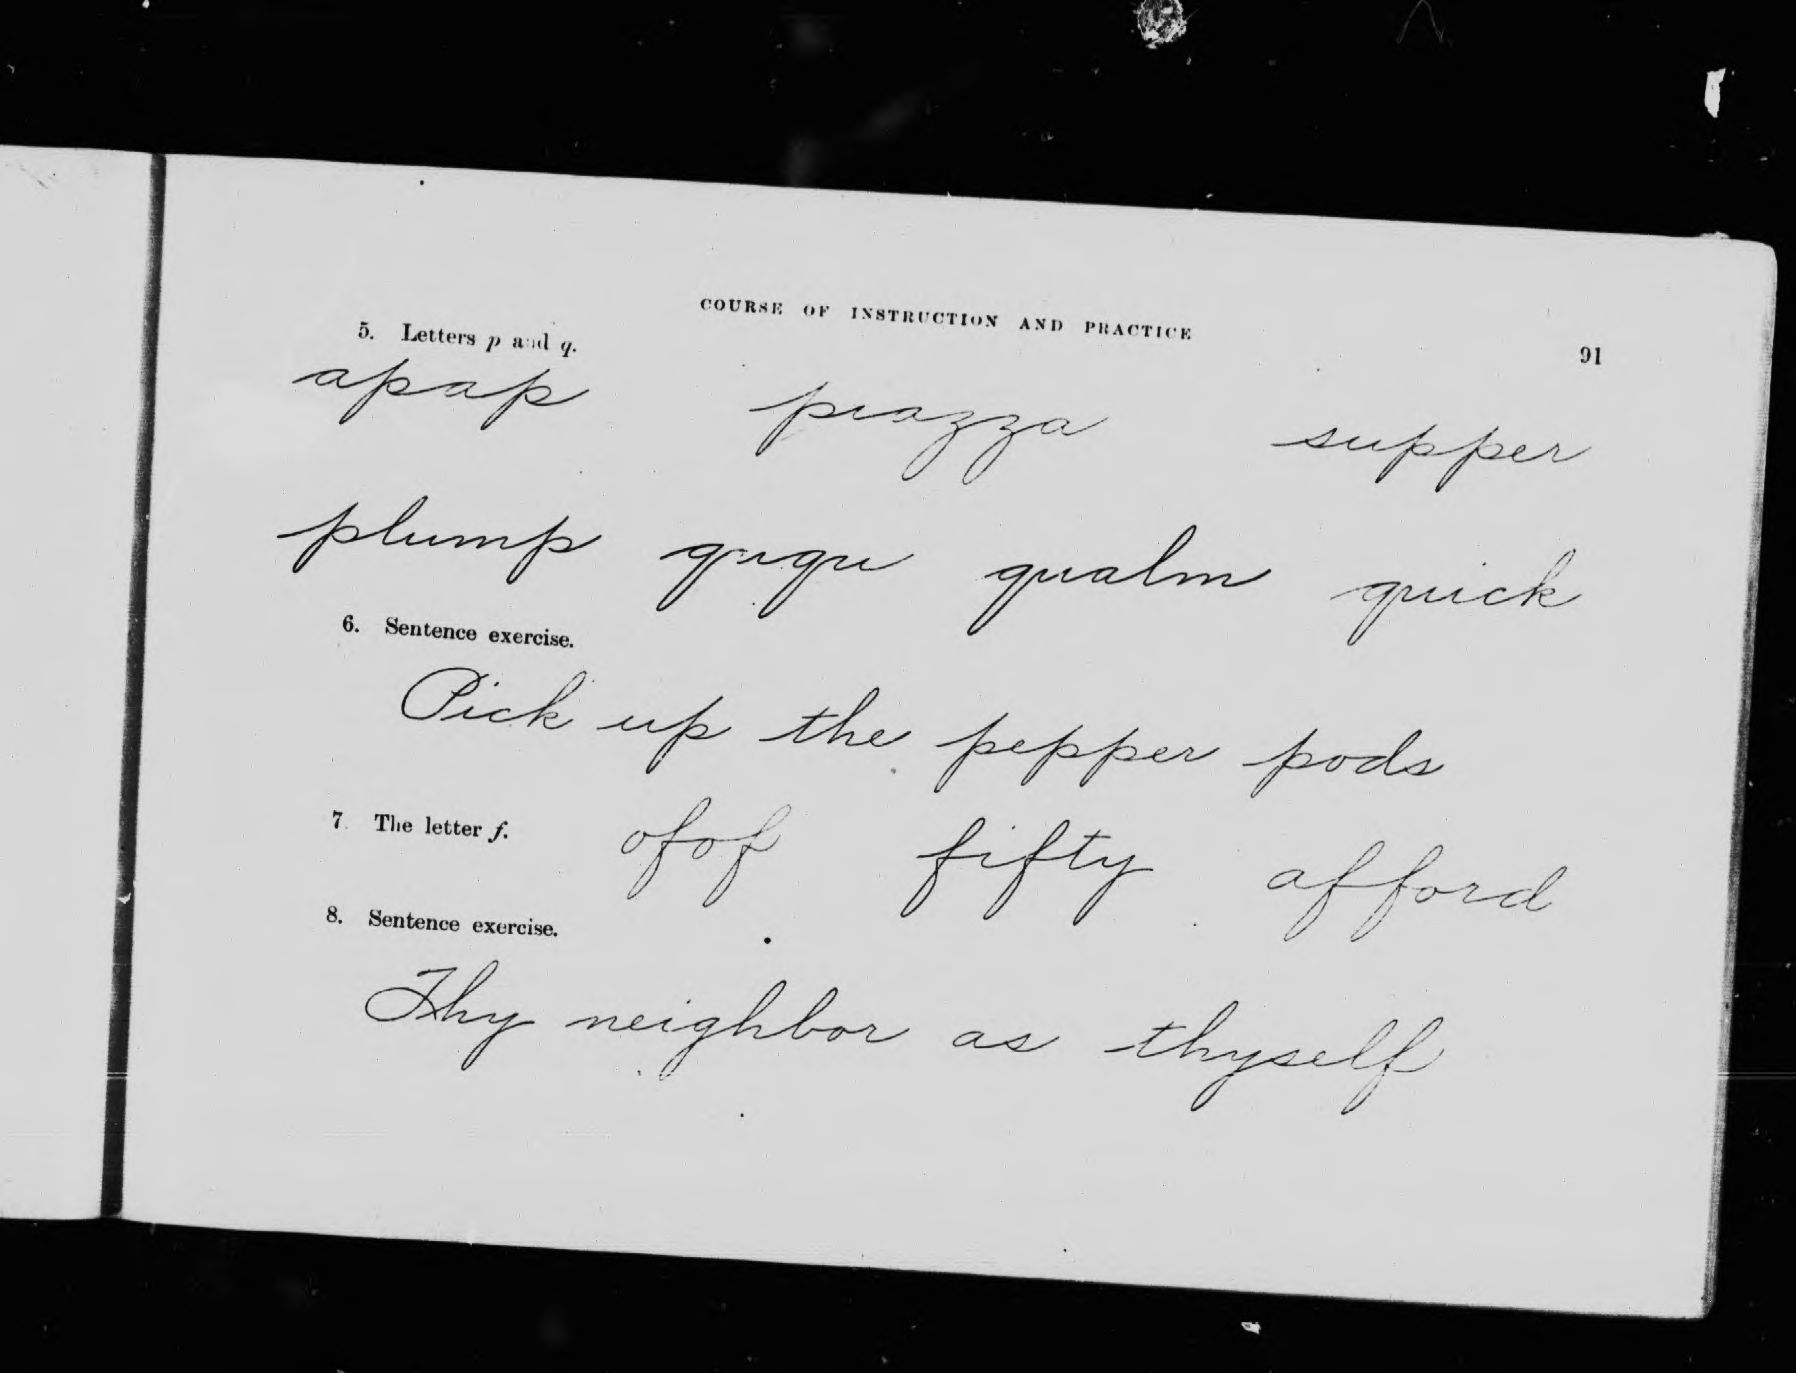 COURSE OF INSTRUCTION AND PRACTICE
91
5. Letters p and q.
apap piazza supper
plump ququ qualm quick
6. Sentence exercise.
Pick up the pepper pods
7 The letter f. ofof fifty afford
8. Sentence exercise.
Thy neighbor as thyself